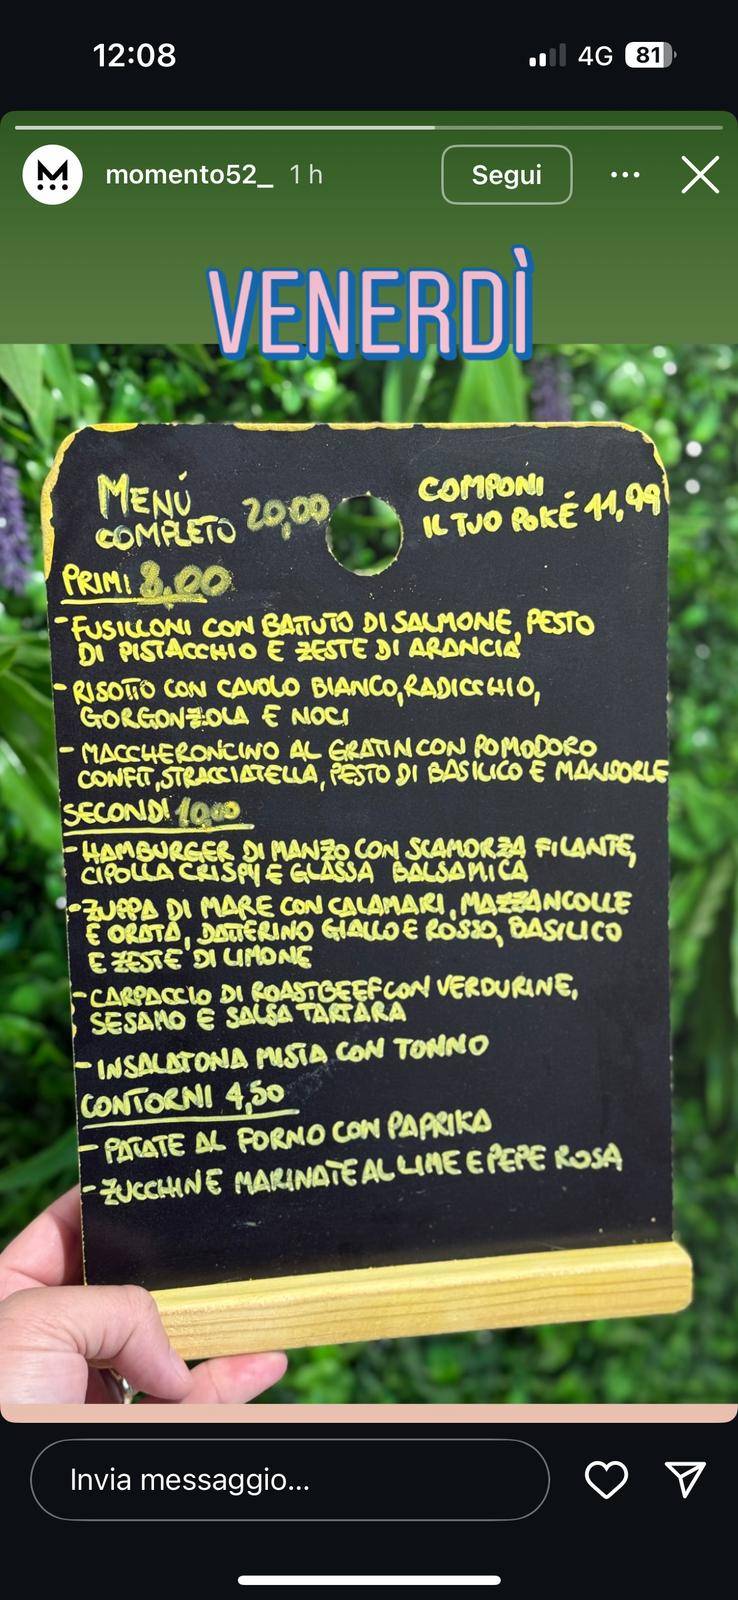 12:08
4G 81
momento52_ 1 h
Segui
VENERDÌ
MENÚ
COMPLETO 20,00
COMPONI
IL TUO POKÉ 11,99
PRIMI 8,00
- FUSILLONI CON BATTUTO DI SALMONE, PESTO
DI PISTACCHIO E ZESTE DI ARANCIA
- RISOTTO CON CAVOLO BIANCO, RADICCHIO,
GORGONZOLA E NOCI
- MACCHERONCINO AL GRATIN CON POMODORO
CONFIT, STRACCIATELLA, PESTO DI BASILICO E MANDORLE
SECONDI 10,00
- HAMBURGER DI MANZO CON SCAMORZA FILANTE,
CIPOLLA CRISPY E GLASSA BALSAMICA
- ZUPPA DI MARE CON CALAMARI, MAZZANCOLLE
E ORATA, DATTERINO GIALLO E ROSSO, BASILICO
E ZESTE DI LIMONE
- CARPACCIO DI ROASTBEEF CON VERDURINE,
SESAMO E SALSA TARTARA
- INSALATONA MISTA CON TONNO
CONTORNI 4,50
- PATATE AL FORNO CON PAPRIKA
- ZUCCHINE MARINATE AL LIME E PEPE ROSA
Invia messaggio...